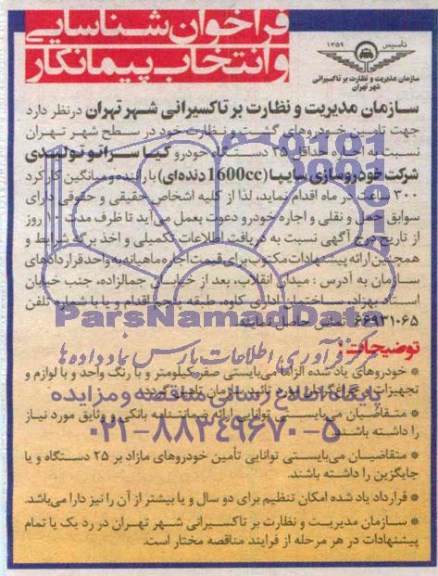 فراخوان شناسایی
و انتخاب پیمانکار
تأسیس ۱۳۵۹
سازمان مدیریت و نظارت بر تاکسیرانی
شهر تهران
سازمان مدیریت و نظارت بر تاکسیرانی شهر تهران در نظر دارد
جهت تامین خودروهای گشت و نظارت خود در سطح شهر تهران
نسبت به حداقل ۲۵ دستگاه خودرو کیا سراتو تولیدی
شرکت خودروسازی سایپا (1600cc دنده‌ای) با راننده و میانگین کارکرد
۳۰۰ ساعت در ماه اقدام نماید، لذا از کلیه اشخاص حقیقی و حقوقی دارای
سوابق حمل و نقلی و اجاره خودرو دعوت بعمل می‌آید تا ظرف مدت ۱۰ روز
از تاریخ درج آگهی نسبت به دریافت اطلاعات تکمیلی و اخذ برگ شرایط و
همچنین ارائه پیشنهادات مکتوب برای قیمت اجاره ماهیانه به واحد قراردادهای
سازمان به آدرس : میدان انقلاب، بعد از خیابان جمالزاده، جنب خیابان
بهزاد، ساختمان اداری کاوه، طبقه اقدام و یا با شماره تلفن
۶۶۹۳۱۰۶۵ تماس حاصل نمایند.
توضیحات :
* خودروهای یاد شده الزاما می‌بایستی صفر کیلومتر و با رنگ واحد و با لوازم و
تجهیزات
* متقاضیان می‌بایستی توانایی ارائه ضمانتنامه بانکی و وثایق مورد نیاز
را داشته باشند.
* متقاضیان می‌بایستی توانایی تأمین خودروهای مازاد بر ۲۵ دستگاه و یا
جایگزین را داشته باشند.
* قرارداد یاد شده امکان تنظیم برای دو سال و یا بیشتر از آن را نیز دارا می‌باشد.
* سازمان مدیریت و نظارت بر تاکسیرانی شهر تهران در رد یک یا تمام
پیشنهادات در هر مرحله از فرایند مناقصه مختار است.
ParsNamadData
مرکز فرآوری اطلاعات پارس نماد داده‌ها
پایگاه اطلاع رسانی مناقصه و مزایده
۰۲۱-۸۸۳۴۹۶۷۰-۵